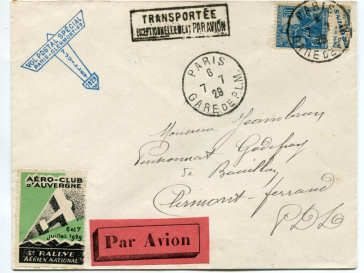 TRANSPORTÉE
EXCEPTIONNELLEMENT PAR AVION
VOL POSTAL SPÉCIAL
PARIS-CLERMONT-FD
7 JUILLET
1929
PARIS
6
7 - 7
29
GARE DE P.L.M.
PARIS
GARE DE P.L.M.
Monsieur Jeambrun
Pensionnat Godefroy
de Bouillon
Clermont-Ferrand
P.D.D.
AÉRO-CLUB
D'AUVERGNE
6 et 7
juillet 1929
3e RALLYE
AÉRIEN NATIONAL
Par Avion